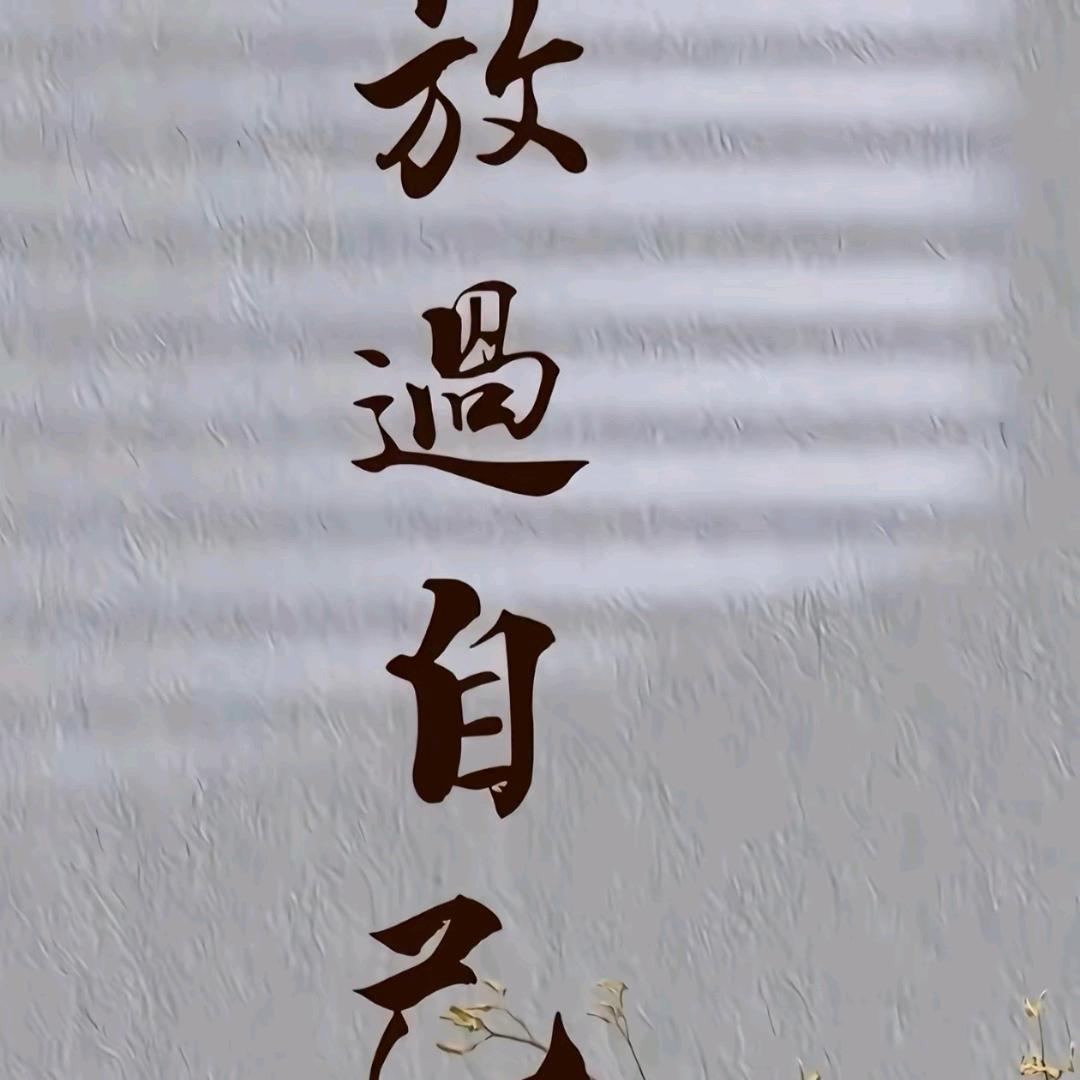 放過自己